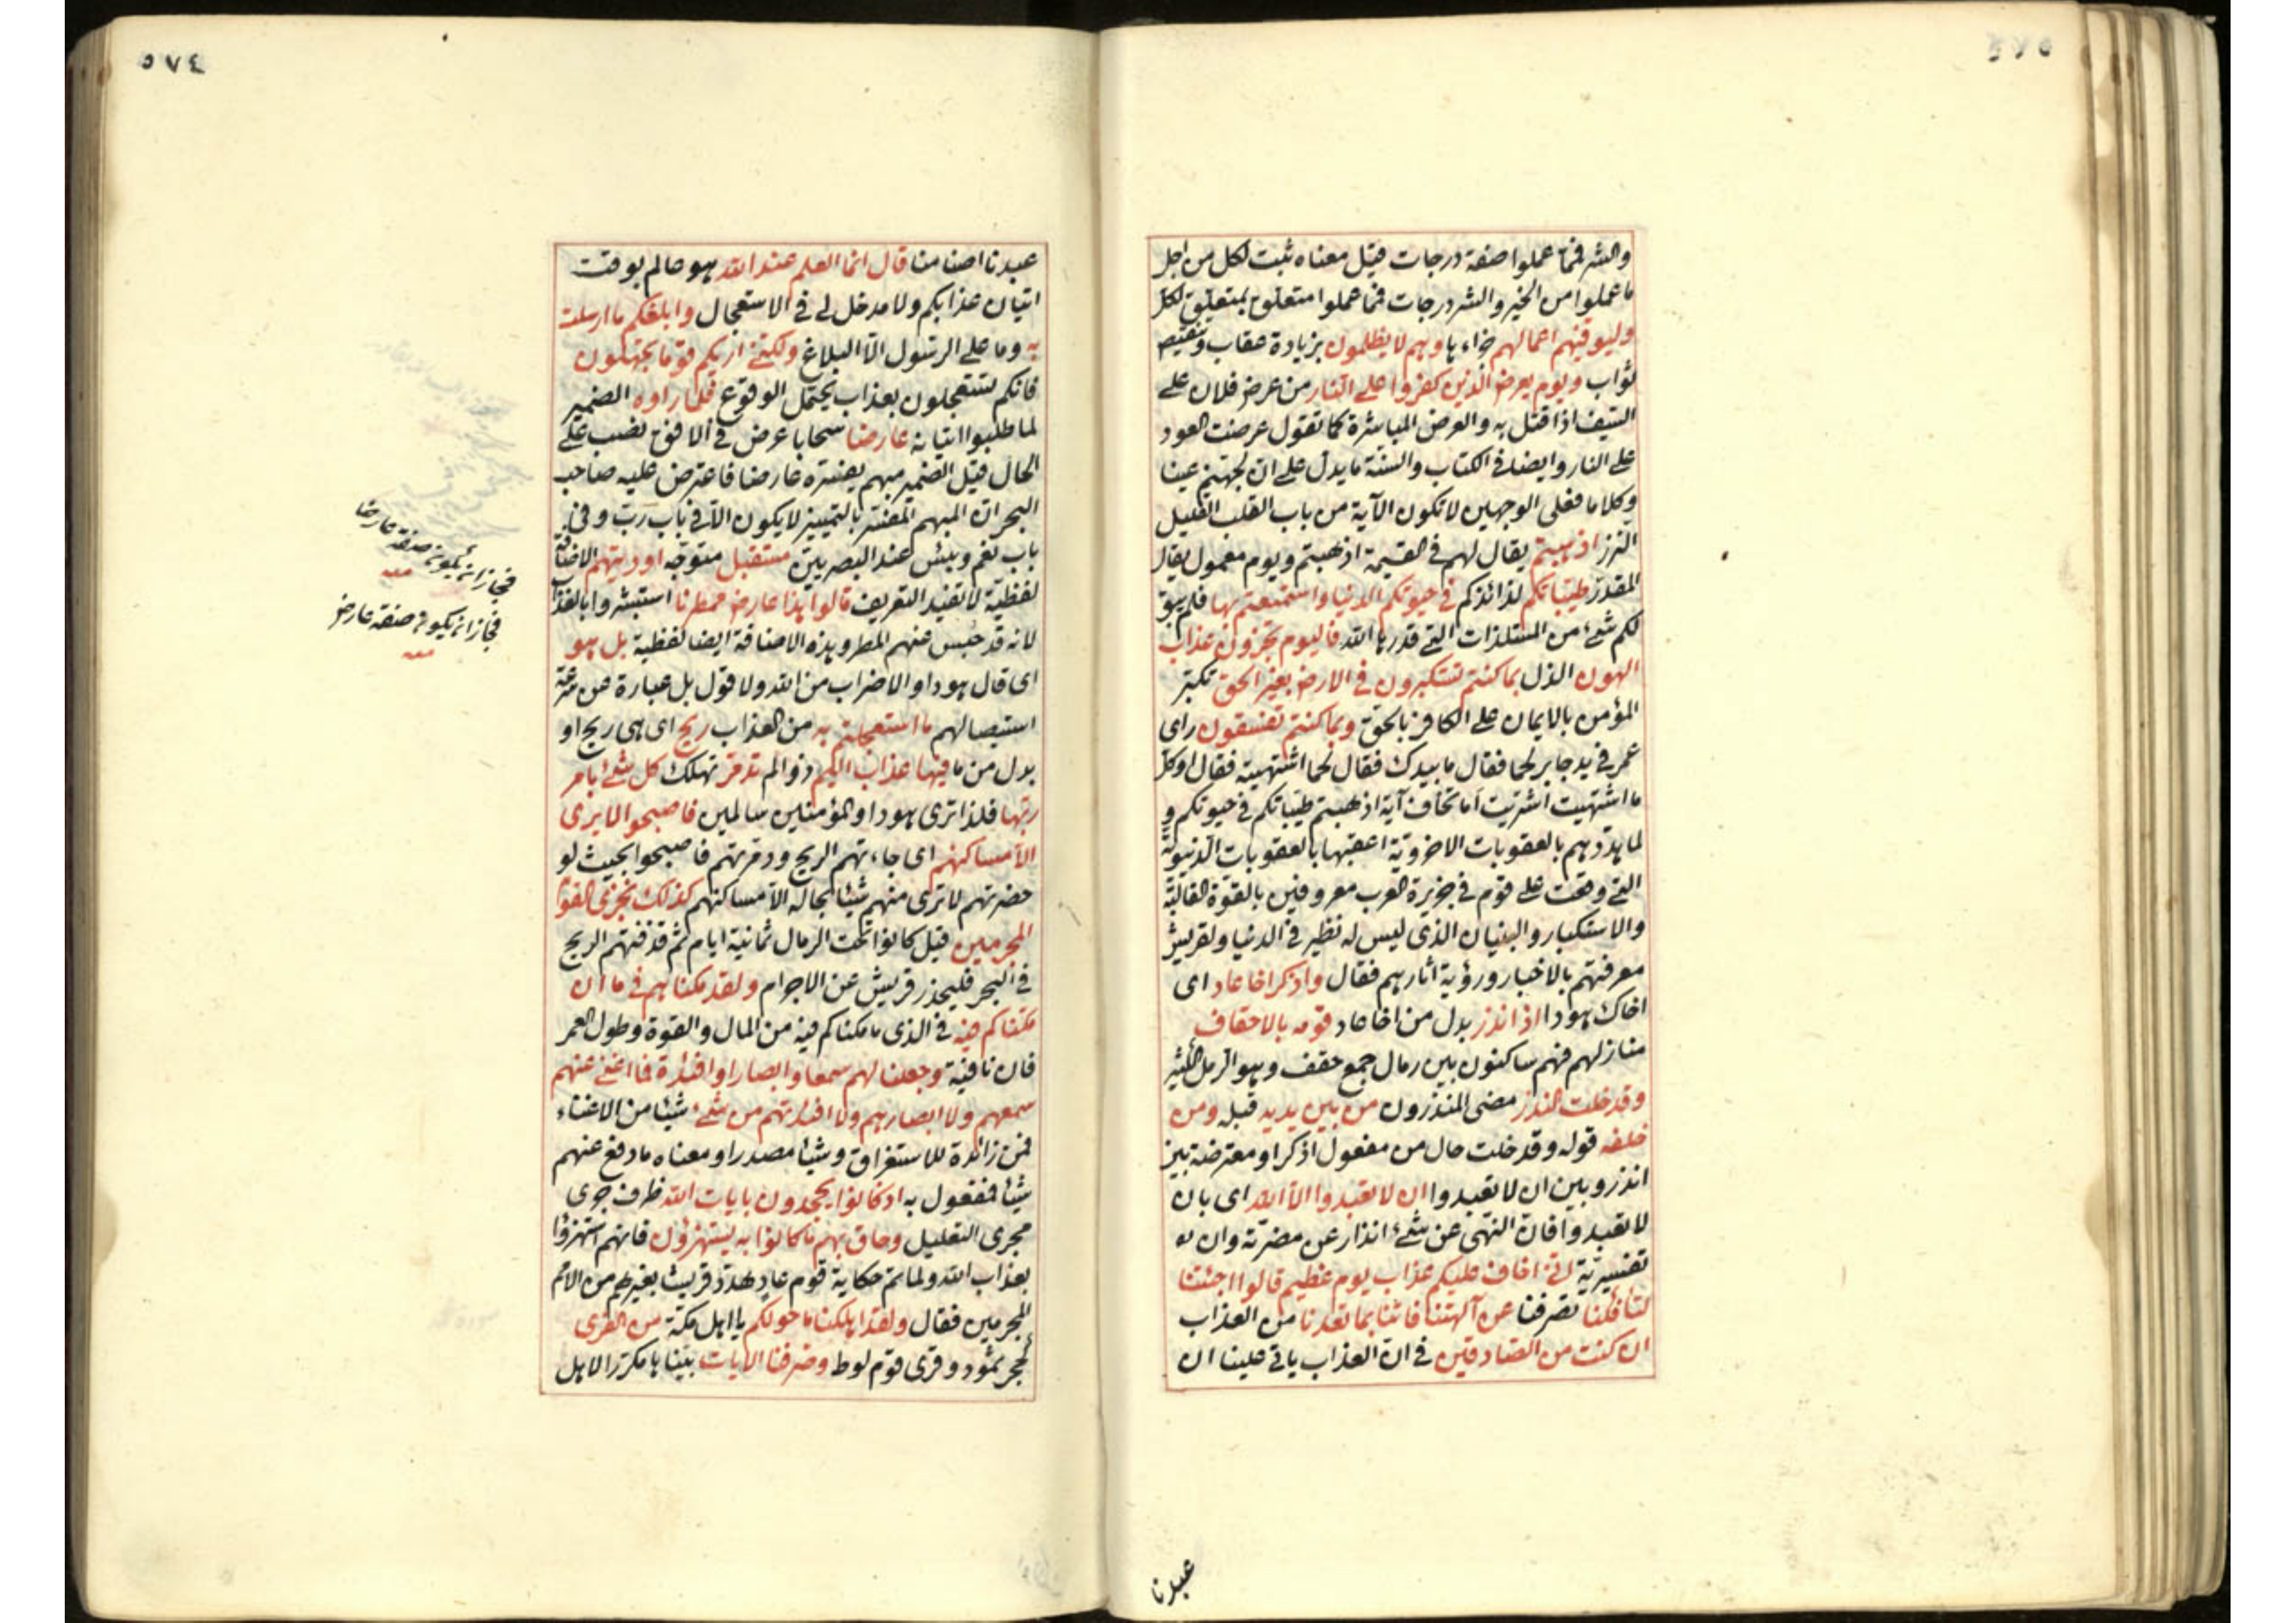 ٥٧٥
والشر فمما عملوا صفة درجات قيل معناه ثبت لكل من اجل
ما عملوا من الخير والشر درجات فمما عملوا متعلق بمتعلق لكل
وليوفيهم اعمالهم جزاءها وهم لا يظلمون بزيادة عقاب وتنقيص
ثواب ويوم يعرض الذين كفروا على النار من عرض فلان على
السيف اذا قتل به والعرض المباشرة كما تقول عرضت العود
على النار وايضا في الكتاب والسنة ما يدل على ان لجهنم عينا
وكلاما فعلى الوجهين لا تكون الآية من باب القلب القليل
النزر اذهبتم يقال لهم في القيمة اذهبتم ويوم معمول يقال
المقدر طيباتكم لذائذكم في حيوتكم الدنيا واستمتعتم بها فلم يبق
لكم شئ من المستلذات التي قدرها الله فاليوم تجزون عذاب
الهون الذل بما كنتم تستكبرون في الارض بغير الحق تكبر
المؤمن بالايمان على الكافر بالحق وبما كنتم تفسقون راى
عمر في يد جابر لحما فقال ما بيدك فقال لحما اشتهيته فقال او كل
ما اشتهيت اشتريت اما تخاف آية اذهبتم طيباتكم في حيوتكم و
لما هددهم بالعقوبات الاخروية اعقبها بالعقوبات الدنيوية
التي وقعت على قوم في جزيرة العرب معروفين بالقوة الغالبة
والاستكبار والبنيان الذي ليس له نظير في الدنيا ولقريش
معرفتهم بالاخبار ورؤية اثارهم فقال واذكر اخا عاد اى
اخاك هودا اذ انذر بدل من اخا عاد قومه بالاحقاف
منازلهم فهم ساكنون بين رمال جمع حقف وهو الرمل الكثير
وقد خلت النذر مضى المنذرون من بين يديه قبله ومن
خلفه قوله وقد خلت حال من مفعول اذكر او معترضة بين
انذر وبين ان لا تعبدوا ان لا تعبدوا الا الله اى بان
لا تعبدوا فان النهى عن شئ انذار عن مضرته وان لو
تفسيرية انى اخاف عليكم عذاب يوم عظيم قالوا اجئتنا
لتأفكنا تصرفنا عن آلهتنا فاتنا بما تعدنا من العذاب
ان كنت من الصادقين في ان العذاب ياتى علينا ان
عبدنا
٥٧٤
عبدنا اصناما قال انما العلم عند الله هو عالم بوقت
اتيان عذابكم ولا مدخل لي في الاستعجال وابلغكم ما ارسلت
به وما على الرسول الا البلاغ ولكنى اريكم قوما تجهلون
فانكم تستعجلون بعذاب يحتمل الوقوع فلما راوه الضمير
لما طلبوا اتيانه عارضا سحابا عرض في الافق نصب على
الحال قيل الضمير مبهم يفسره عارضا فاعترض عليه صاحب
البحر ان المبهم المفسر بالتمييز لا يكون الا في باب رب وفي
باب نعم وبئس عند البصريين مستقبل متوجه اوديتهم الاضافة
لفظية لا تفيد التعريف قالوا هذا عارض ممطرنا استبشروا بالعذاب
لانه قد حبس عنهم المطر وهذه الاضافة ايضا لفظية بل هو
اى قال هود او الاضراب من الله ولا قول بل عبارة عن سرعة
استيصالهم ما استعجلتم به من العذاب ريح اى هى ريح او
بدل من ما فيها عذاب اليم ذو الم تدمر تهلك كل شئ بامر
ربها فلذا ترى هودا والمؤمنين سالمين فاصبحوا لا يرى
الا مساكنهم اى جاءتهم الريح ودمرتهم فاصبحوا بحيث لو
حضرتهم لا ترى منهم شيئا بحاله الا مساكنهم كذلك نجزى القوم
المجرمين قيل كانوا تحت الرمال ثمانية ايام ثم قذفتهم الريح
في البحر فليحذر قريش عن الاجرام ولقد مكناهم في ما ان
مكناكم فيه في الذى ما مكناكم فيه من المال والقوة وطول العمر
فان نافية وجعلنا لهم سمعا وابصارا وافئدة فما اغنى عنهم
سمعهم ولا ابصارهم ولا افئدتهم من شئ شيئا من الاغناء
فمن زائدة للاستغراق وشيئا مصدر او معناه ما دفع عنهم
شيئا فمفعول به اذ كانوا يجحدون بايات الله ظرف جرى
مجرى التعليل وحاق بهم ما كانوا به يستهزؤن فانهم استهزؤا
بعذاب الله ولما تم حكاية قوم عاد هدد قريشا بغيرهم من الامم
المجرمين فقال ولقد اهلكنا ما حولكم يا اهل مكة من القرى
كحجر ثمود وقرى قوم لوط وصرفنا الايات بيناها مكررا لاهل
فجاز ان يكون صفة عارضا
منه
فجاز ان يكون صفة عارض
منه